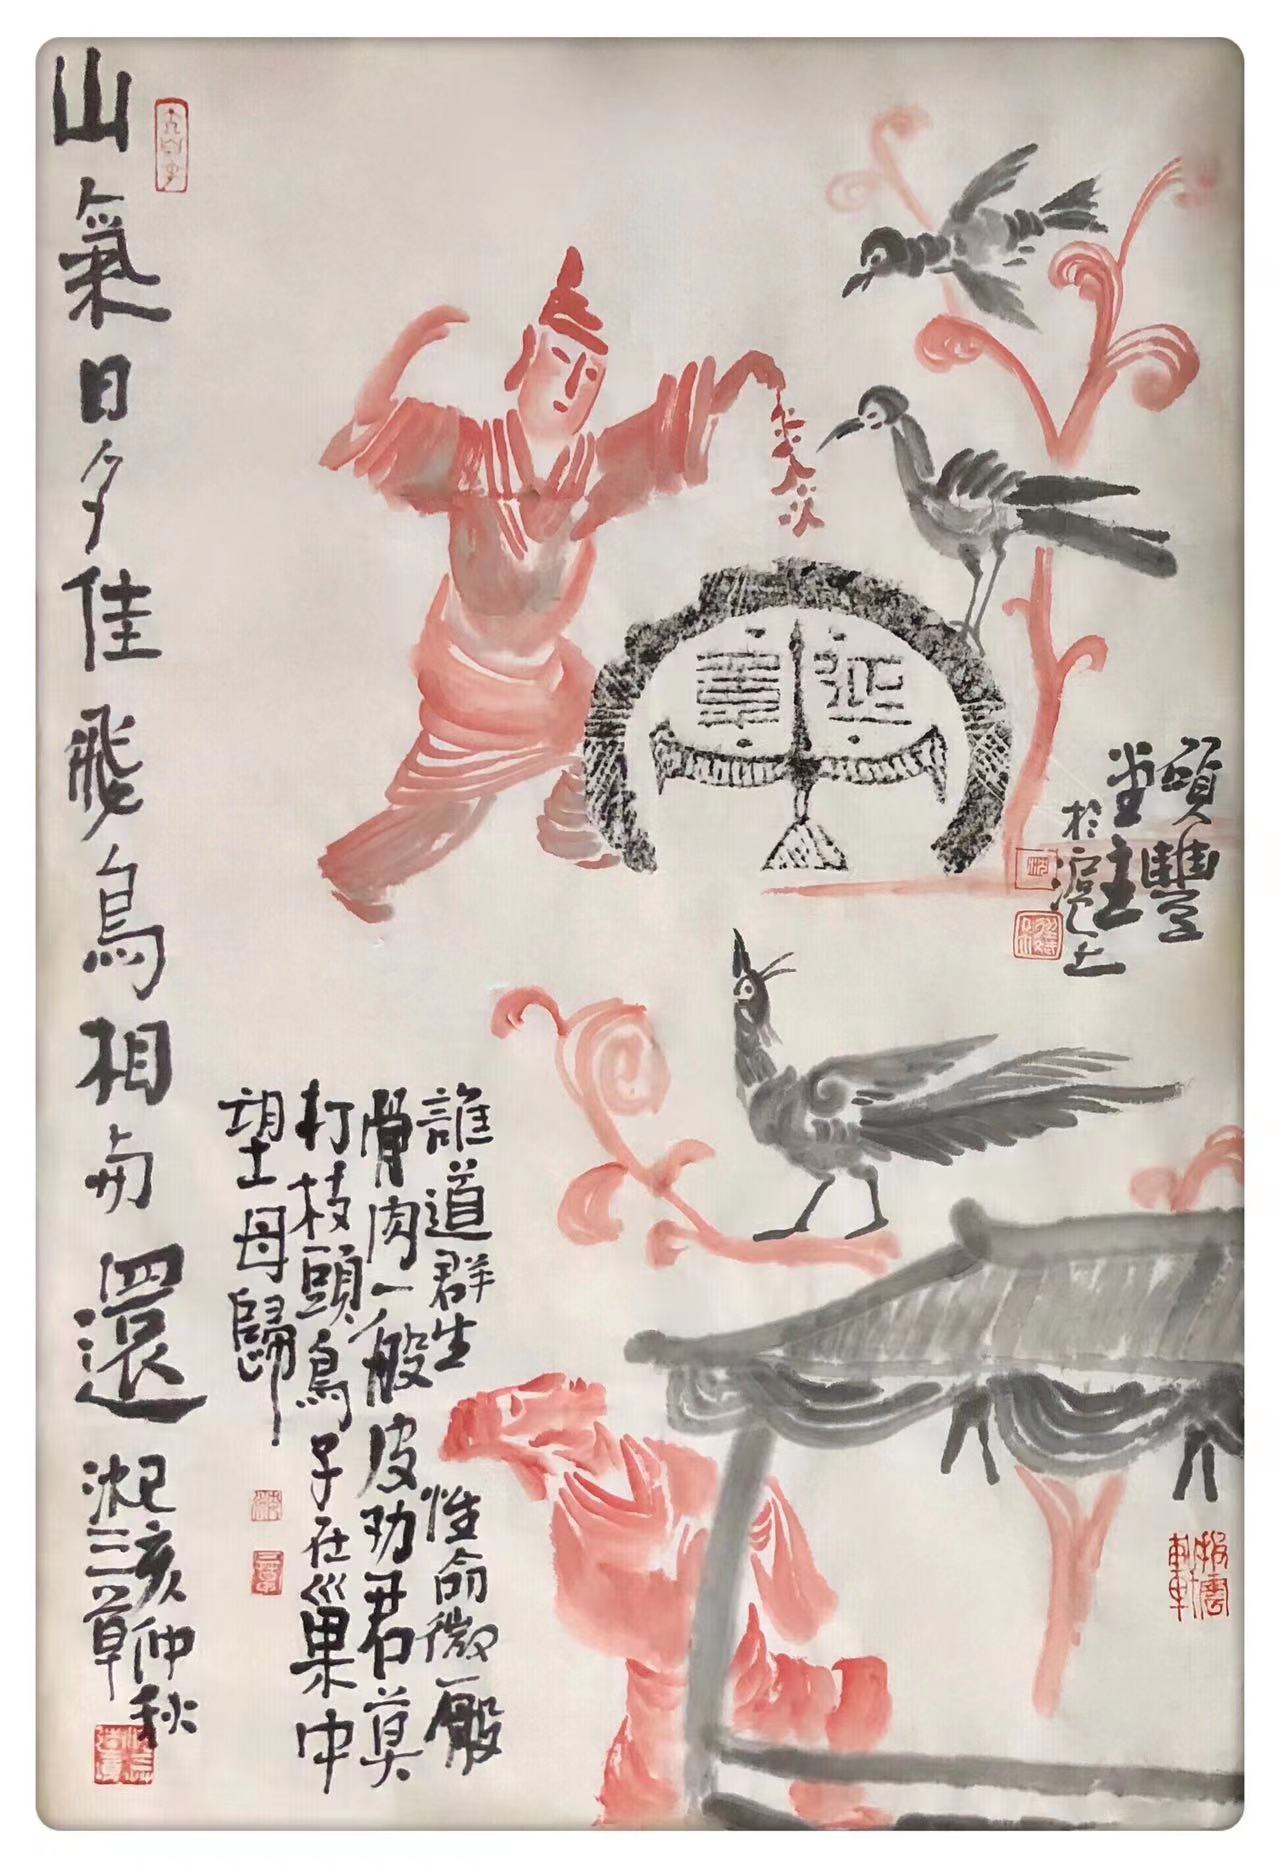 頤豐
堂主
於滬上
延年
誰道群生性命微一般
骨肉一般皮劝君莫
打枝頭鳥子在巢中
望母歸
山氣日夕佳飛鳥相与還
己亥仲秋
沈三草